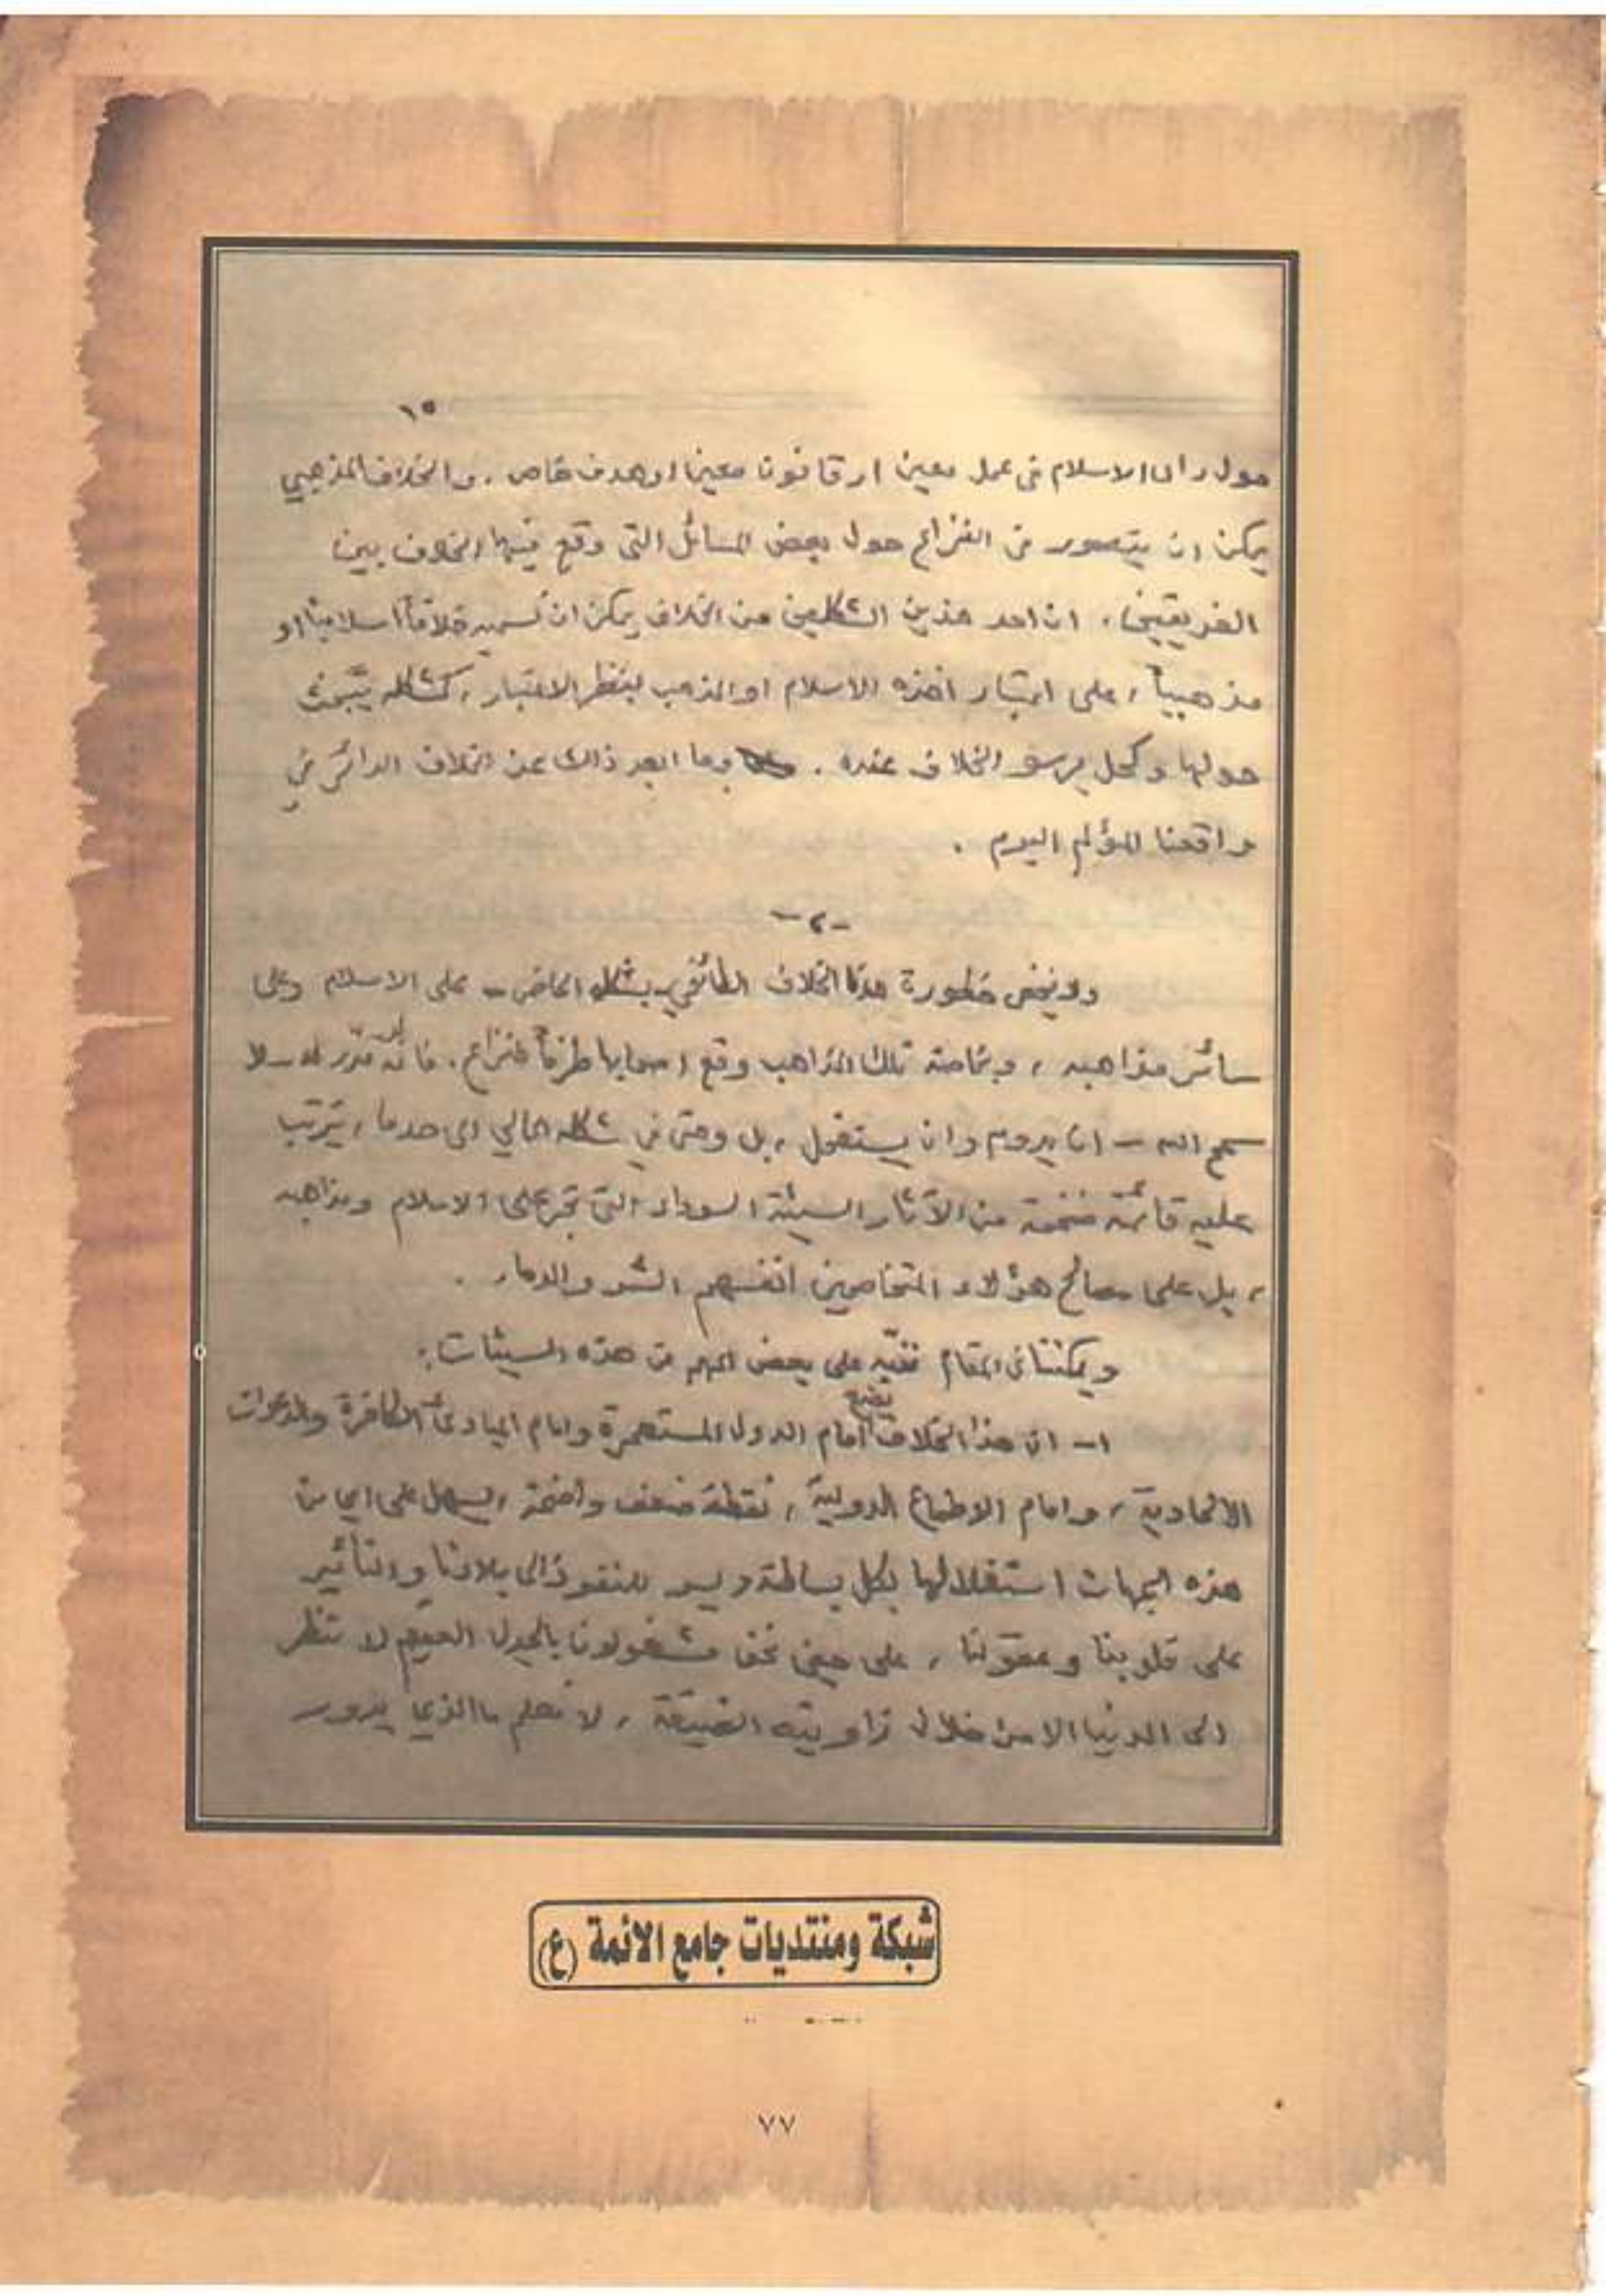 ١٥
حول رأى الاسلام في عمل معين او قانون معين او هدف خاص . والخلاف المذهبي
يمكن ان يتصور في النزاع حول بعض المسائل التي وقع فيها الخلاف بين
الفريقين ، ان احد هذين الشكلين من الخلاف يمكن ان نسميه خلافاً اسلامياً او
مذهبياً ، على اعتبار اخذه الاسلام او المذهب بنظر الاعتبار ، كمشكلة يتباحث
حولها وكحل يرسو الخلاف عنده . وما ابعد ذلك عن الخلاف الدائر في
واقعنا المؤلم اليوم .
-٢-
ولا يخفى خطورة هذا الخلاف الطائفي بشكله الحاضر - على الاسلام وعلى
سائر مذاهبه ، وبخاصة تلك المذاهب وقع اصحابها طرفاً للنزاع . فانه لو قدّر له - لا
سمح الله - ان يدوم وان يستفحل ، بل وحتى في شكله الحالي الى حد ما ، يترتب
عليه قائمة ضخمة من الآثار السيئة السوداء التي تجر على الاسلام ومذاهبه
، بل على مصالح هؤلاء المتخاصمين انفسهم الشر والدمار .
ويمكننا في المقام ننبّه على بعض المهم من هذه السيئات :
١- ان هذا الخلاف يضع امام الدول المستعمرة وامام المبادئ الكافرة والدعوات
الالحادية ، وامام الاطماع الدولية ، نقطة ضعف واضحة ، يسهل على اي من
هذه الجهات استغلالها بكل بساطة ويسر للنفوذ الى بلادنا والتأثير
على قلوبنا وعقولنا ، على حين نحن مشغولون بالجدل العقيم لا ننظر
الى الدنيا الا من خلال زاويته الضيقة ، لا نعلم ما الذي يدور
شبكة ومنتديات جامع الائمة (ع)
٧٧